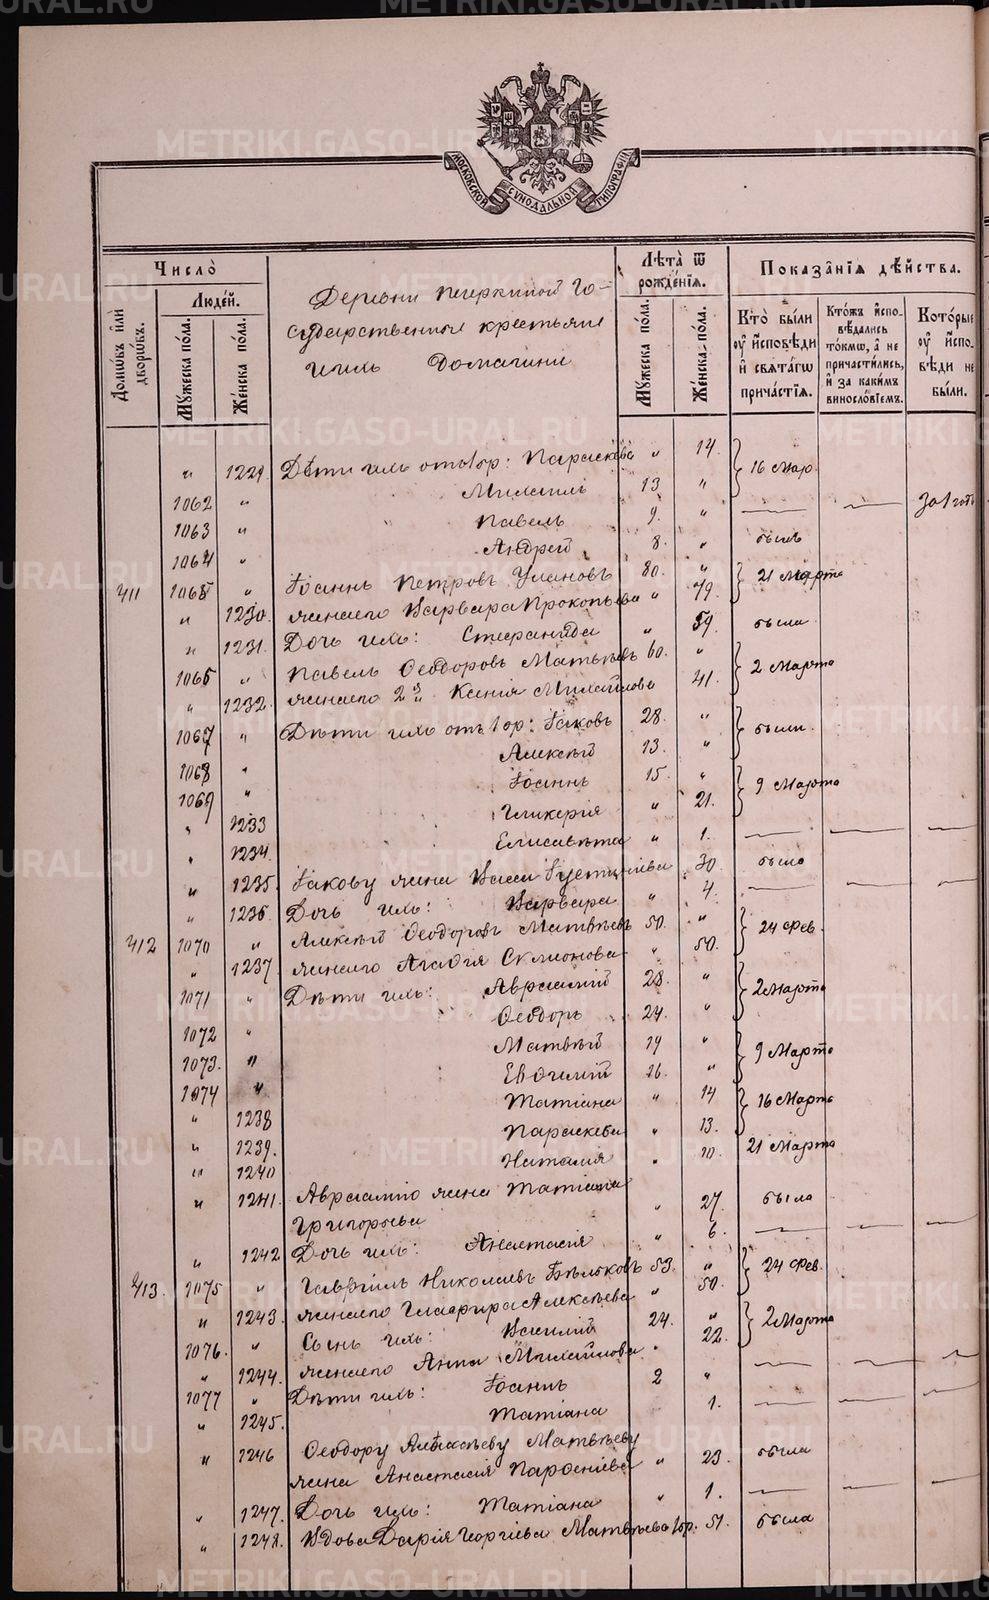 МОСКОВСКОЙ СѴНОДАЛЬНОЙ ТИПОГРАФІИ
Число̀
Домѡвъ и҆лѝ дворѡвъ.
Люде́й.
Мꙋ́жеска по́ла.
Же́нска по́ла.
Лѣта̀ ѿ рожде́нїѧ.
Мꙋ́жеска по́ла.
Же́нска по́ла.
Показа̑нїѧ дѣ́йства.
Кто̀ бы́ли ᲂу҆ и҆сповѣ́ди и҆ свѧта́гѡ прича́стїѧ.
Кто́жъ и҆спо-вѣ́дались то́кмѡ, а҆ не причасти́лись, и҆ за каки́мъ винослѡ́вїемъ.
Кото́рые ᲂу҆ и҆спо-вѣ́ди не бы́ли.
Деревни Го-
сударственные крестьяне
ихъ Домашніе
" 1229 Дѣти ихъ отъ 1 бр: Параскева " 14. 16 Мар.
1062 " Михаилъ 13 " — — За 1 годъ
1063 " Павелъ 9. "
1064 " Андрей 8. " былъ
411 1065 " Іоаннъ Петровъ Улановъ 80. " 21 Марта
" 1230. жена его Варвара Прокопьева " 79.
" 1231. Дочь ихъ: Стефанида " 59. была
1066 " Павелъ Ѳеодоровъ Матвѣевъ 60. " 2 Марта
" 1232. жена его 2я Ксенія Михайлова 41.
1067 " Дѣти ихъ отъ 1 бр: Іаковъ 28. " были
1068 " Алексѣй 13. "
1069 " Іоаннъ 15. " 9 Марта
" 1233 Гликерія " 21.
" 1234. Елисавета " 1. — — —
" 1235. Іакову жена 30. была
" 1236. Дочь ихъ: Варвара " 4. — — —
412 1070 " Алексѣй Ѳеодоровъ Матвѣевъ 50. " 24 Фев.
" 1237. жена его Агаѳія Симионова " 50.
1071 " Дѣти ихъ: Авраамій 28. " 2 Марта
1072 " Ѳеодоръ 24. "
1073. " Матвѣй 19 " 9 Марта
1074 " Евѳимій 16. "
" 1238 Татіана " 14 16 Марта
" 1239. Параскева " 13.
" 1240 Наталія " 10. 21 Марта
" 1241. Авраамію жена Татіана
Григорьева " 27. была
" 1242 Дочь ихъ: Анастасія " 6. — — —
413. 1075 " Гавріилъ Николаевъ Бѣлковъ 53. " 24 Фев.
" 1243. жена его Глафира Алексѣева " 50.
1076. " Сынъ ихъ: Василій 24. " 2 Марта
" 1244. жена его Анна Михайлова " 22.
1077 " Дѣти ихъ: Іоаннъ 2 " — — —
" 1245. Татіана 1. — — —
" 1246 Ѳеодору Алексѣеву Матвѣеву
жена Анастасія Парѳеніева " 23. была
" 1247. Дочь ихъ: Татіана " 1. — — —
" 1248. Вдова Дарія Георгіева Матвѣева 1 бр. 51. была
METRIKI.GASO-URAL.RU